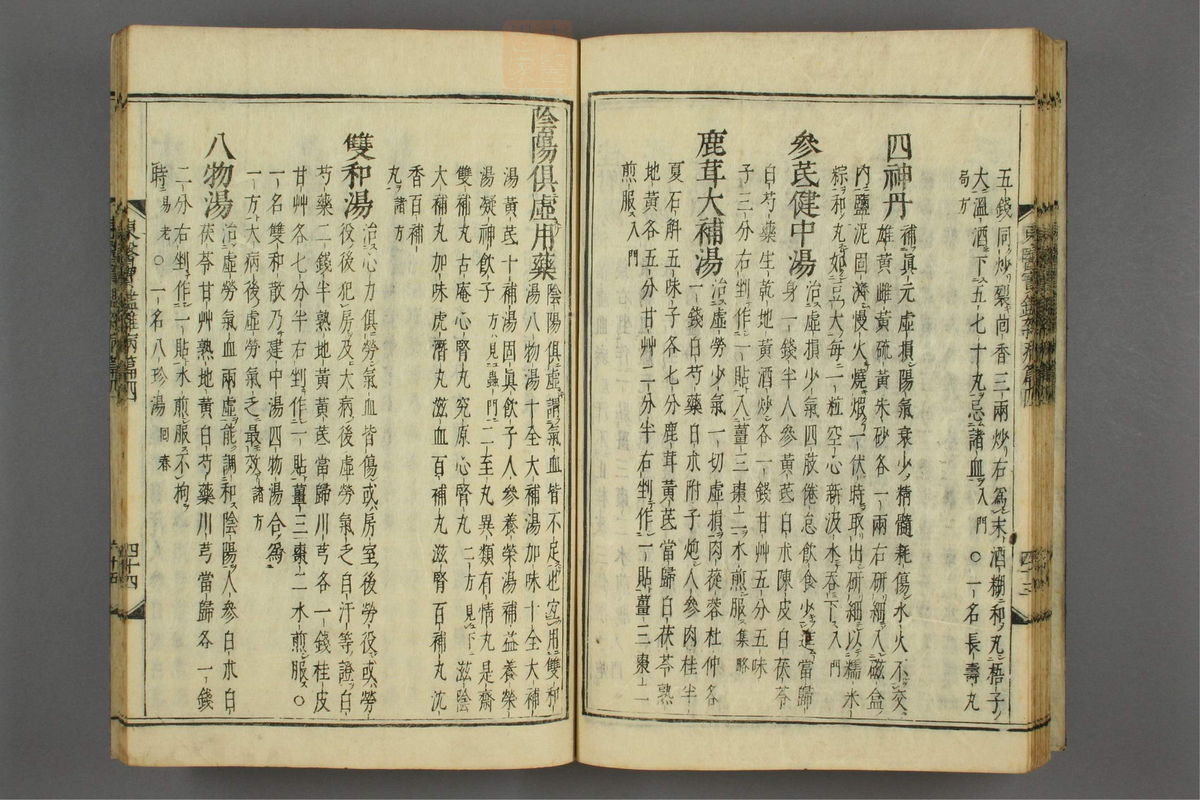 五錢同炒裂茴香三兩炒右爲末酒糊和丸梧子
大溫酒下五七十丸忌諸血入門○一名長壽丸
局方
四神丹補眞元虛損陽氣衰少精髓耗傷水火不交
雄黃雌黃硫黃朱砂各一兩右硏細入磁盒
內鹽泥固濟慢火燒煆一伏時取出硏細以糯米
粽和丸如豆大每一粒空心新汲水吞下入門
參芪健中湯治虛損少氣四肢倦怠飲食少進當歸
身一錢半人參黃芪白朮陳皮白茯苓
白芍藥生乾地黃酒炒各一錢甘艸五分五味
子三分右剉作一貼入薑三棗二水煎服集略
鹿茸大補湯治虛勞少氣一切虛損肉蓯蓉杜仲各
一錢白芍藥白朮附子炮人參肉桂半
夏石斛五味子各七分鹿茸黃芪當歸白茯苓熟
地黃各五分甘艸二分半右剉作一貼薑三棗二
煎服入門
四十三
陰陽俱虛用藥陰陽俱虛謂氣血皆不足也宜用雙和
湯八物湯十全大補湯加味十全大補
湯黃芪十補湯固眞飲子人參養榮湯補益養榮
湯凝神飲子方見蟲門二至丸異類有情丸是齋
雙補丸古庵心腎丸究原心腎丸二方見下滋陰
大補丸加味虎潛丸滋血百補丸滋腎百補丸沈
香百補
丸諸方
雙和湯治心力俱勞氣血皆傷或房室後勞役或勞
役後犯房及大病後虛勞氣乏自汗等證白
芍藥二錢半熟地黃黃芪當歸川芎各一錢桂皮
甘艸各七分半右剉作一貼薑三棗二水煎服○
一名雙和散乃建中湯四物湯合爲
一方大病後虛勞氣乏最效諸方
八物湯治虛勞氣血兩虛能調和陰陽人參白朮白
茯苓甘艸熟地黃白芍藥川芎當歸各一錢
二分右剉作一貼水煎服不拘
時易老○一名八珍湯回春
東醫寶鑑雜病篇四
四十四